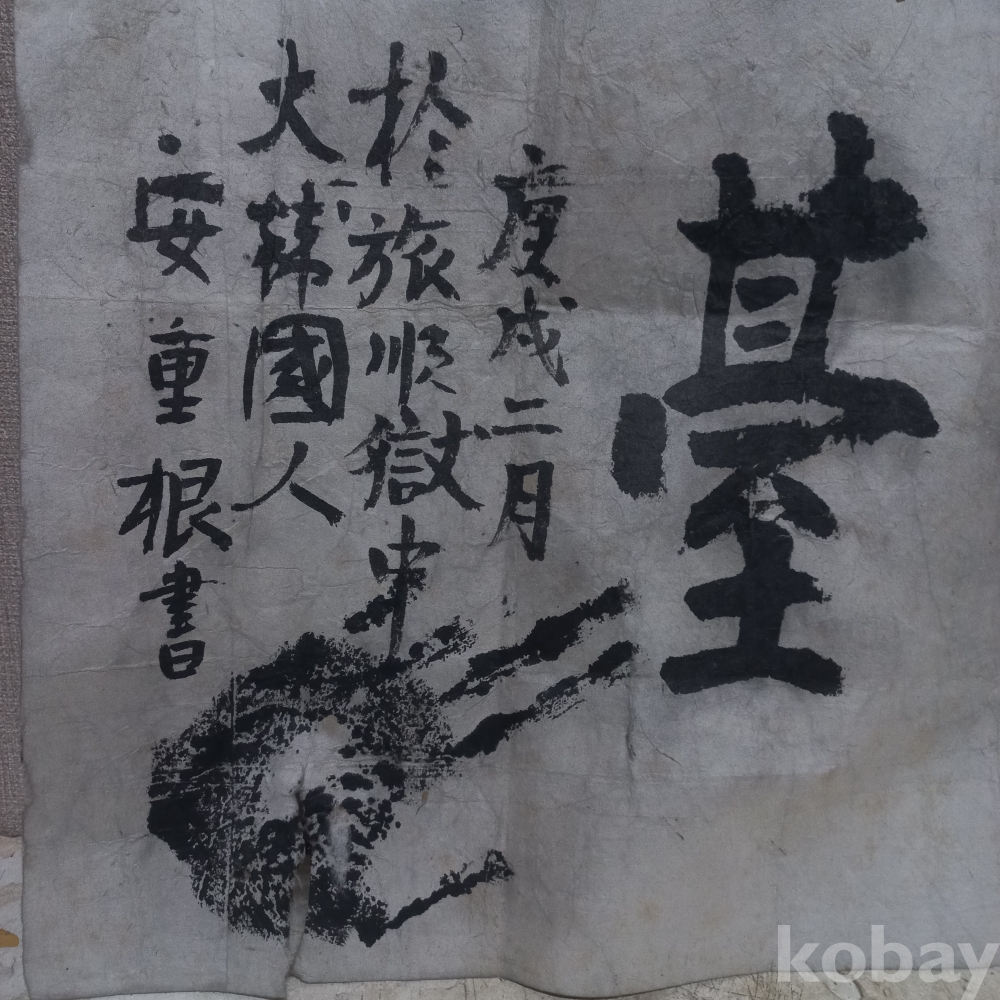 臺
庚戌二月
於旅順獄中
大韓國人
安重根書
kobay